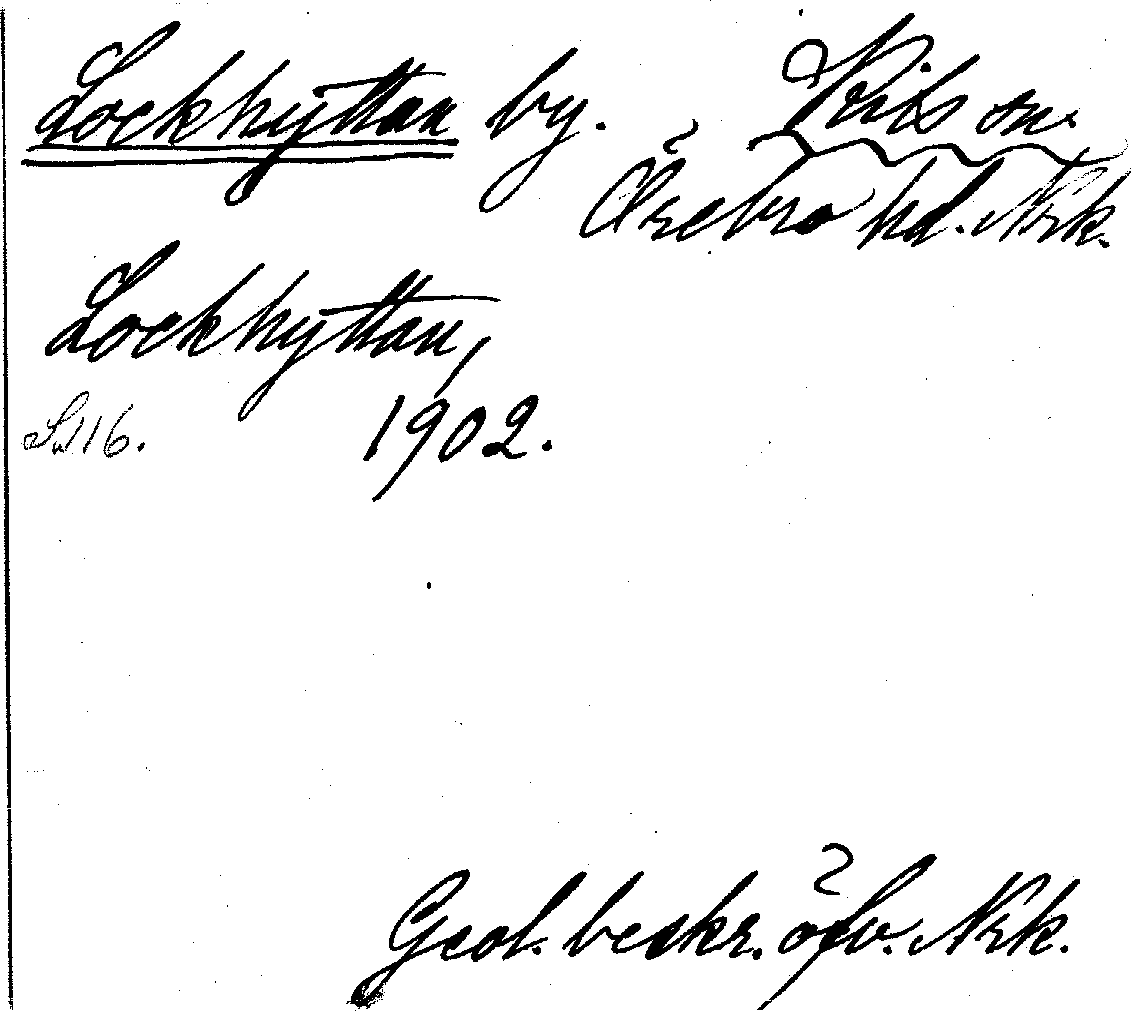 Lockhyttan by. Kils sn.
Örebro hd. Nrk.
Lockhyttan,
S. 116. 1902.
Geol. beskr. öfv. Nrk.